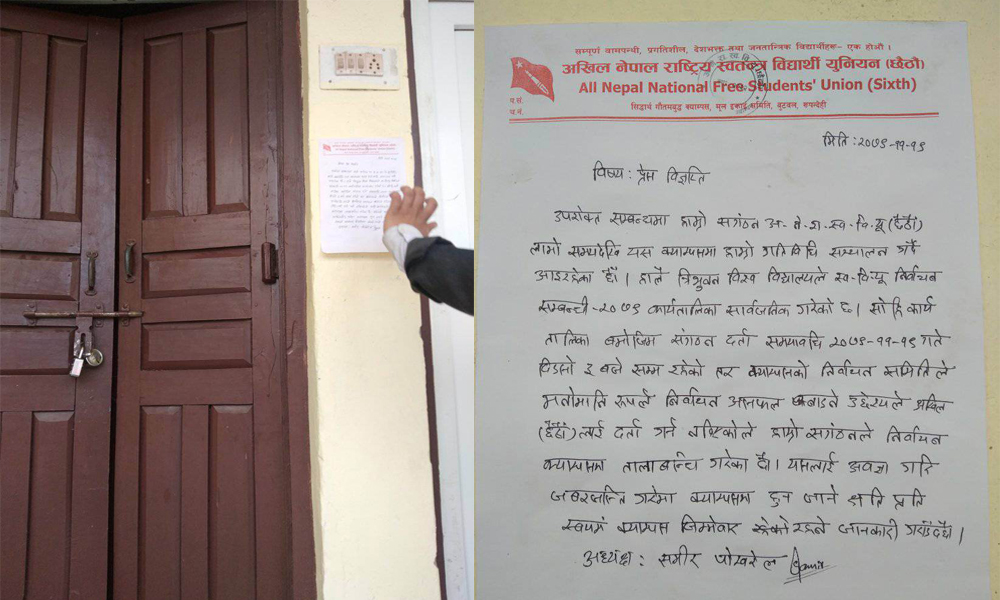 सम्पूर्ण वामपन्थी, प्रगतिशील, देशभक्त तथा जनतान्त्रिक विद्यार्थीहरू- एक होऔं ।
अखिल नेपाल राष्ट्रिय स्वतन्त्र विद्यार्थी युनियन (छैठौं)
All Nepal National Free Students' Union (Sixth)
सिद्धार्थ गौतमबुद्ध क्याम्पस, मूल इकाई समिति, बुटवल, रूपन्देही
प.सं.
च.नं.
मिति : २०७९-११-१९
विषय : प्रेस विज्ञप्ति
उपरोक्त सम्बन्धमा हाम्रो सगंठन अ.ने.रा.स्व.वि.यू (छैठौं)
लामो समयदेखि यस क्याम्पसमा हाम्रो गतिविधि सञ्चालन गर्दै
आइरहेका छौं । हालै त्रिभुवन विश्व विद्यालयले स्व-वियू निर्वाचन
सम्बन्धी-२०७९ कार्यतालिका सार्वजनिक गरेको छ । सोहि कार्य
तालिका बमोजिम सगंठन दर्ता समयावधि २०७९-११-१९ गते
दिउसो ३ बजे सम्म रहेको तर क्याम्पसको निर्वाचन समितिले
मनोमानि रुपले निर्वाचन असफल बनाउने उद्देश्यले अखिल
(छैठौं) लाई दर्ता गर्न नदिएकोले हाम्रो सगंठनले निर्वाचन
क्याम्पसमा तालाबन्दि गरेका छौं । यसलाई अवज्ञा गरि
जबरजस्ति गरेमा क्याम्पसमा हुन जाने क्षति प्रति
स्वयमं क्याम्पस जिम्मेवार रहेको जानकारी गराउँदछौं ।
अध्यक्ष : समीर पोखरेल